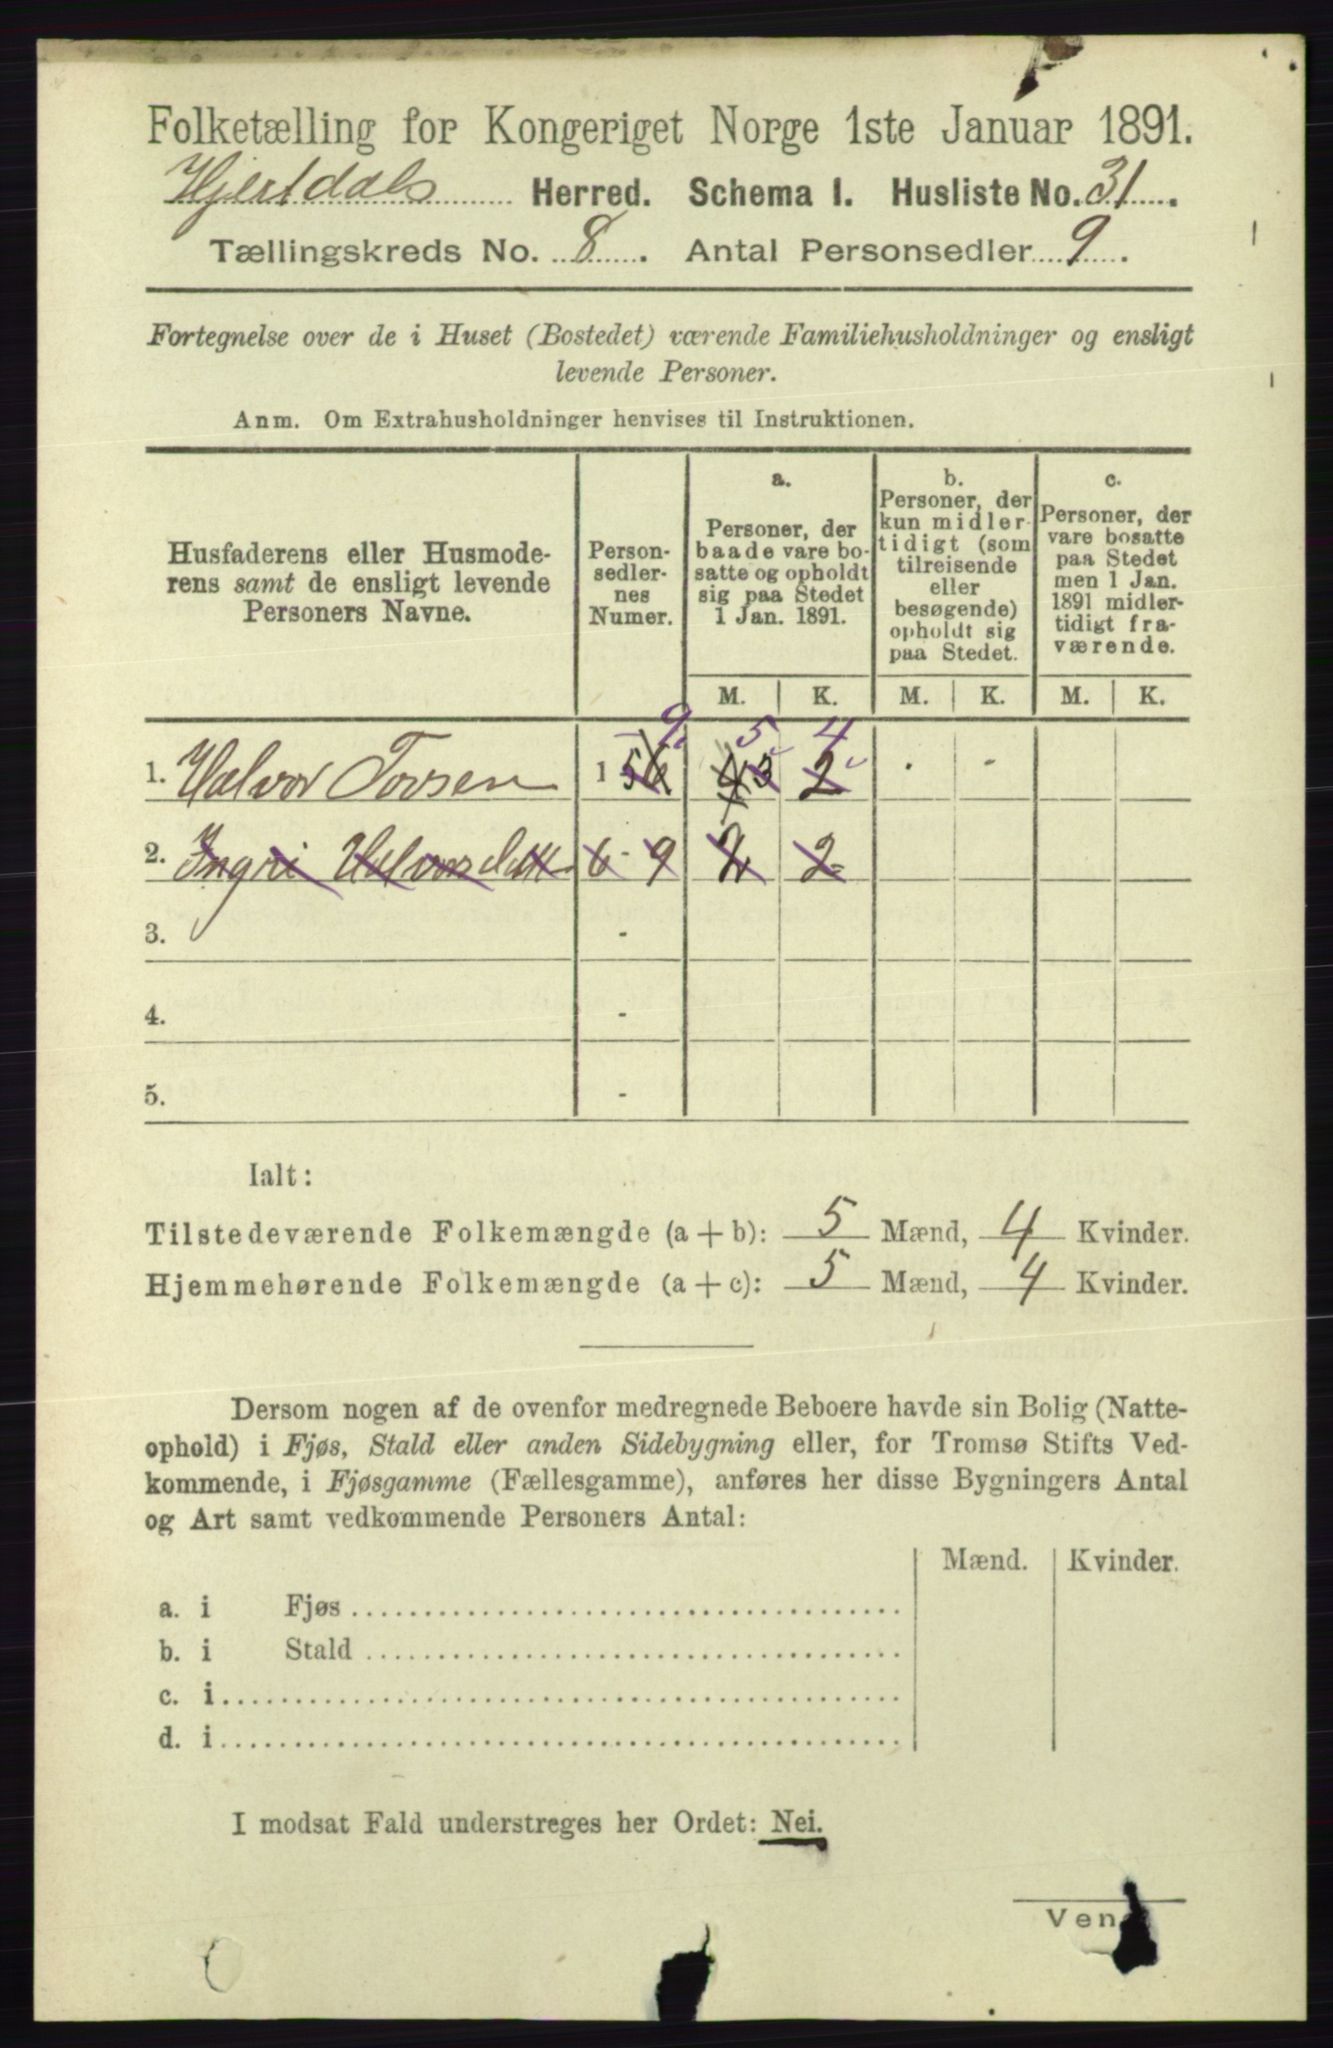 Folketælling for Kongeriget Norge 1ste Januar 1891.
Hjertdals Herred. Schema I. Husliste No. 31.
Tællingskreds No. 8. Antal Personsedler 9.
Fortegnelse over de i Huset (Bostedet) værende Familiehusholdninger og ensligt
levende Personer.
Anm. Om Extrahusholdninger henvises til Instruktionen.
Husfaderens eller Husmode-
rens samt de ensligt levende
Personers Navne.
Person-
sedler-
nes
Numer.
a.
Personer, der
baade vare bo-
satte og opholdt
sig paa Stedet
1 Jan. 1891.
b.
Personer, der
kun midler-
tidigt (som
tilreisende
eller
besøgende)
opholdt sig
paa Stedet.
c.
Personer, der
vare bosatte
paa Stedet
men 1 Jan.
1891 midler-
tidigt fra-
værende.
M. K. M. K. M. K.
9 5 4
1. Halvor Tovsen 1 5 3 2
2. Ingri Halvorsdatt 6 - 9 2 2
3. -
4. -
5. -
Ialt:
Tilstedeværende Folkemængde (a + b): 5 Mænd, 4 Kvinder.
Hjemmehørende Folkemængde (a + c): 5 Mænd, 4 Kvinder.
Dersom nogen af de ovenfor medregnede Beboere havde sin Bolig (Natte-
ophold) i Fjøs, Stald eller anden Sidebygning eller, for Tromsø Stifts Ved-
kommende, i Fjøsgamme (Fællesgamme), anføres her disse Bygningers Antal
og Art samt vedkommende Personers Antal:
Mænd. Kvinder.
a. i Fjøs
b. i Stald
c. i
d. i
I modsat Fald understreges her Ordet: Nei.